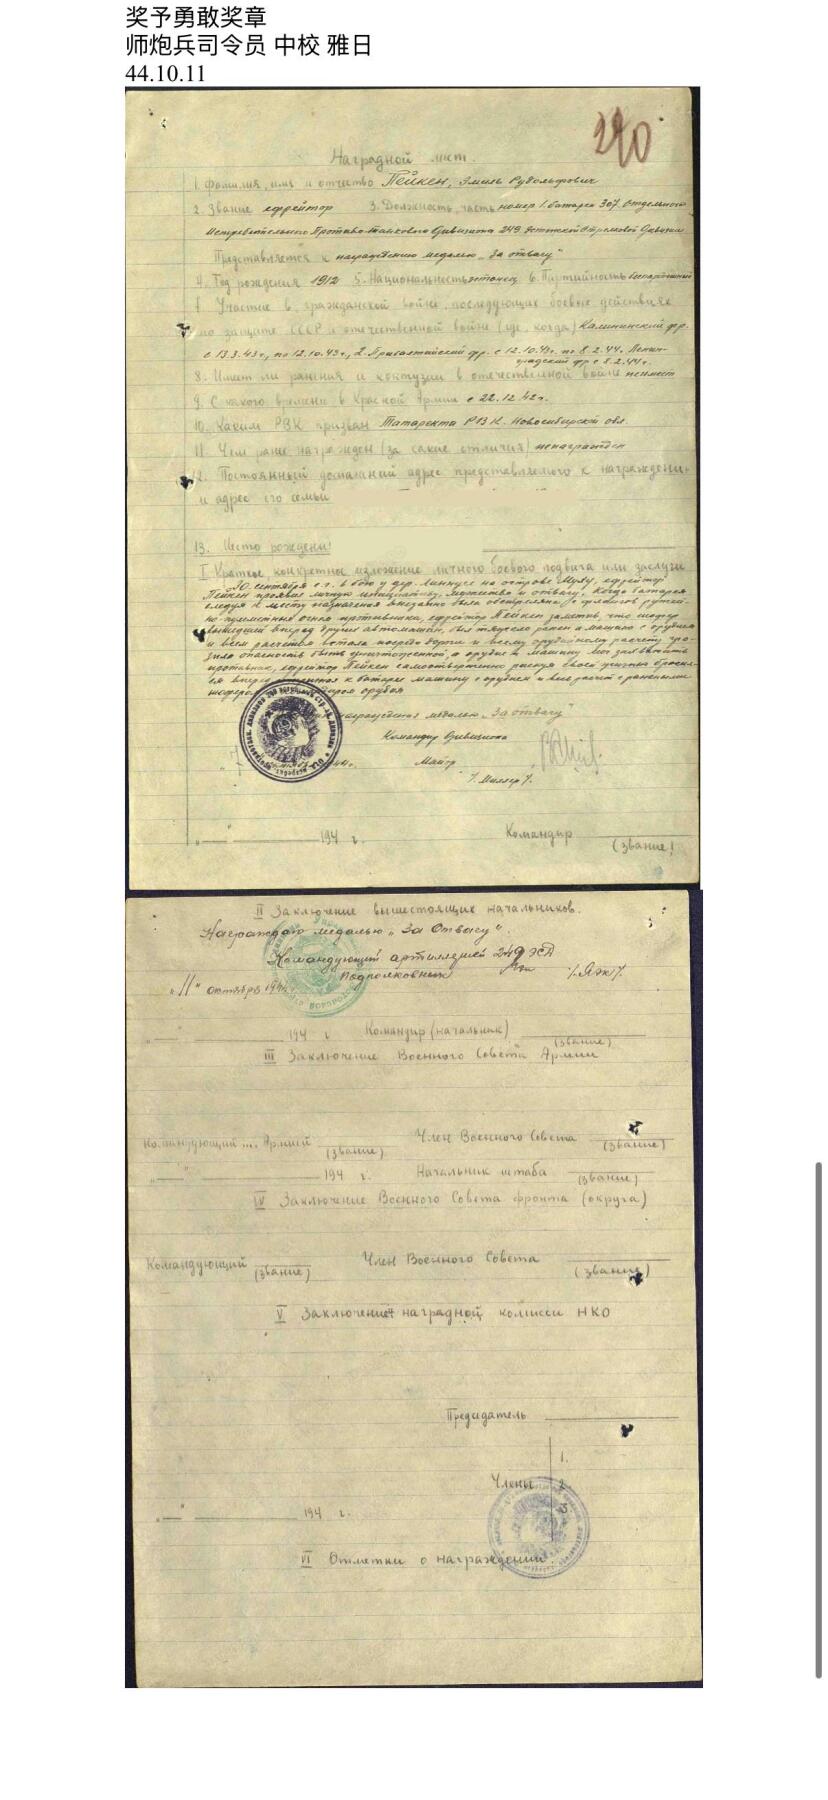 奖予勇敢奖章
师炮兵司令员 中校 雅日
44.10.11
240
Наградной лист.
1. Фамилия, имя и отчество Пейкен, Эмиль Рудольфович
2. Звание ефрейтор 3. Должность, часть номер 1. батареи 307. Отдельного
Истребительного Противо-танкового Дивизиона 249 Эстонской Стрелковой Дивизии
Представляется к награждению медалью „За отвагу"
4. Год рождения 1912 5. Национальность эстонец 6. Партийность беспартийный
Участие в гражданской войне, последующих боевых действиях
по защите СССР и отечественной войне (где, когда) Калининский фр.
с 13.3.43 г., по 12.10.43 г., 2. Прибалтийский фр. с 12.10.43 г. по 8.2.44. Ленин-
градский фр с 8.2.44 г.
8. Имеет ли ранения и контузии в отечественной войне неимеет
9. С какого времени в Красной Армии с 22.12.42 г.
10. Каким РВК призван Татарским РВК. Новосибирской обл.
11. Чем ранее награжден (за какие отличия) ненагражден
12. Постоянный домашний адрес представляемого к награждению
и адрес его семьи
13. Место рождени
I Краткое, конкретное изложение личного боевого подвига или заслуги
30 сентября с.г. в бою у дер. на острове Муху, ефрейтор
Пейкен проявил личную инициативу, мужество и отвагу. Когда батарея
следуя к месту назначения внезапно была обстреляна с флангов ружей-
но-пулеметным огнем противника, ефрейтор Пейкен заметив что шофер
вышедшей вперед других автомашин, был тяжело ранен и машина с орудием
и всем расчетом встала посреди дороги и всему орудийному расчету гро-
зила опасность быть уничтоженной, а орудие и машину мог захватить
противник, ефрейтор Пейкен самоотверженно рискуя своей жизнью бросил-
ся вперед к батареи машину с орудием и весь расчет с раненными
шофера орудия
награждения медалью „За отвагу"
Командир Дивизиона
Майор
/. Миллер /.
„ " 194 г.
Командир
(звание)
II Заключение вышестоящих начальников.
Награждаю медалью „За Отвагу".
Командующий артиллерией 249 ЭСД
Подполковник /. Яэн /.
„11" октября 194 г.
194 г. Командир (начальник)
(звание)
III Заключение Военного Совета Армии
Командующий ... Армией Член Военного Совета
(звание) (звание)
„ " 194 г. Начальник штаба
(звание)
IV Заключение Военного Совета фронта (округа)
Командующий Член Военного Совета
(звание) (звание)
V Заключение наградной комисси НКО
Председатель
1.
Члены 2.
3.
„ " 194 г.
VI Отметки о награждении.